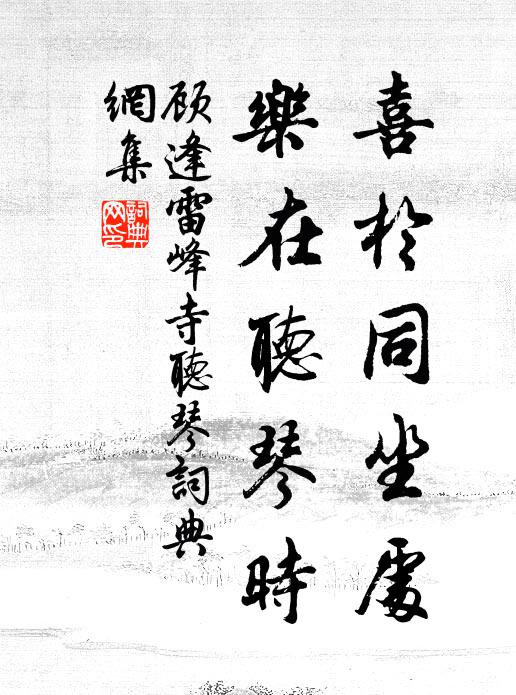 喜於同坐處
樂在聽琴時
顾逢雷峰寺聽琴詞典
網集
詞典
网印